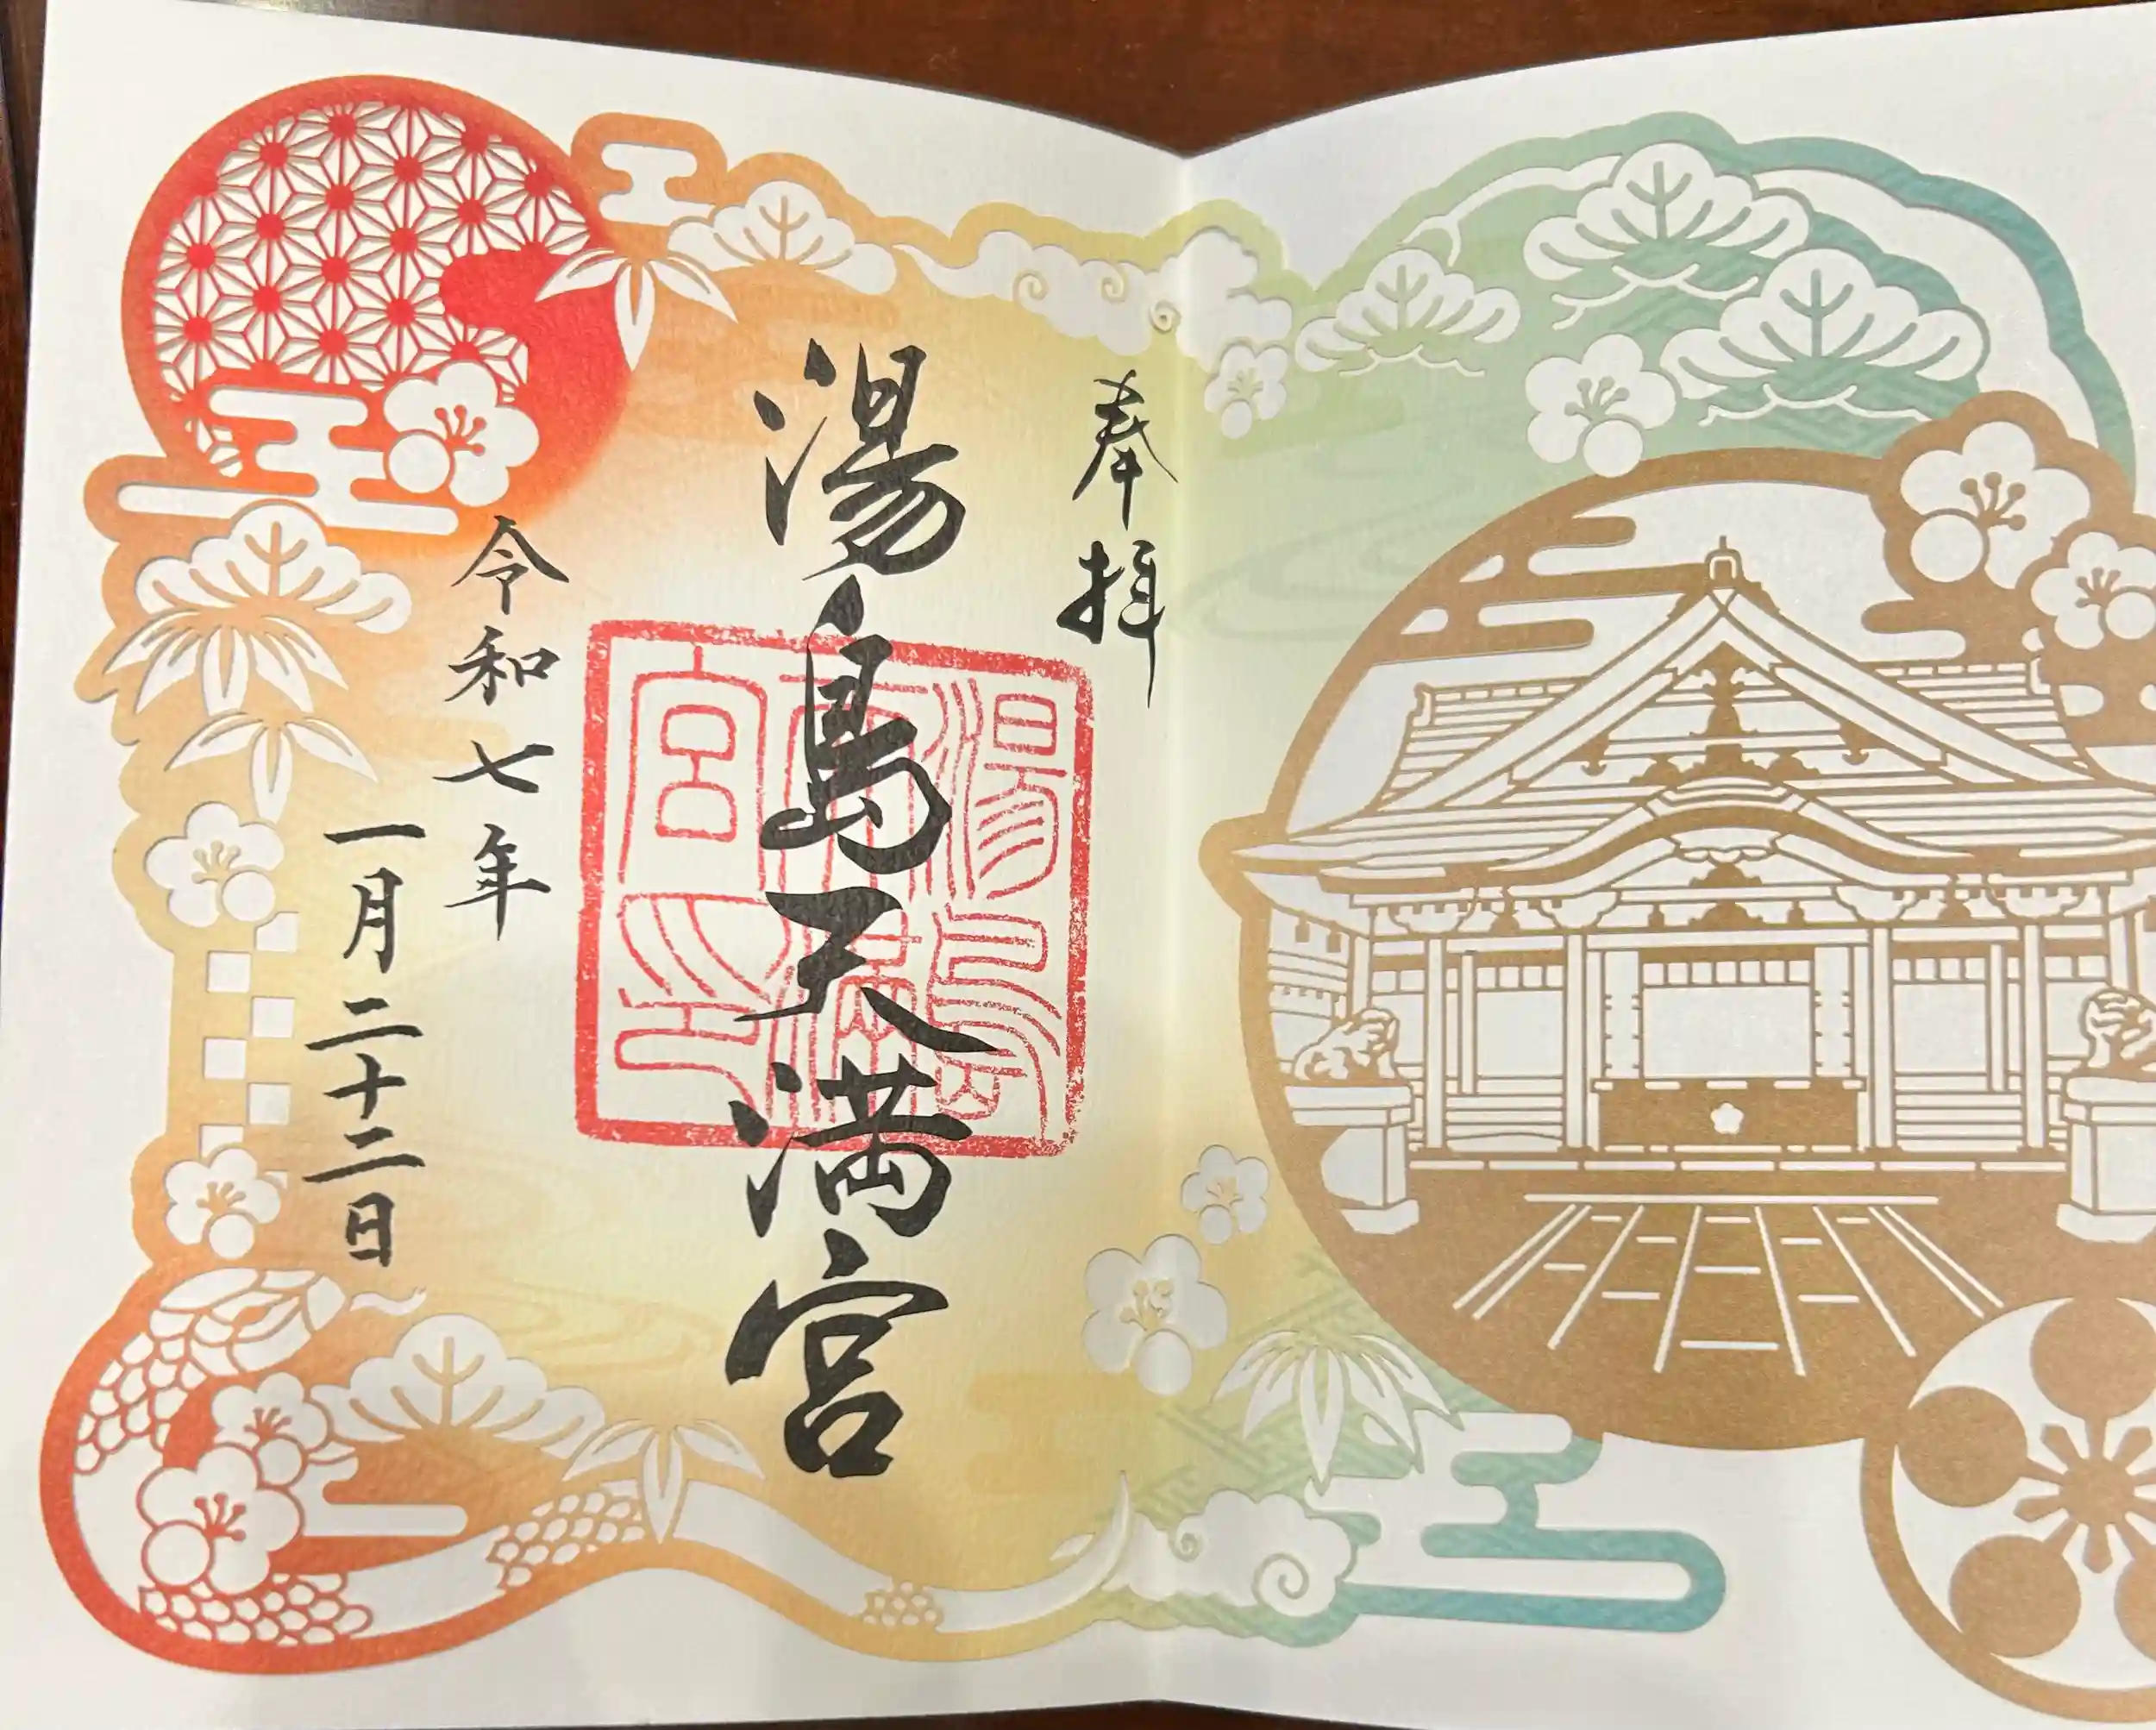 奉拝
湯島天満宮
湯島天満宮印
令和七年
一月二十二日